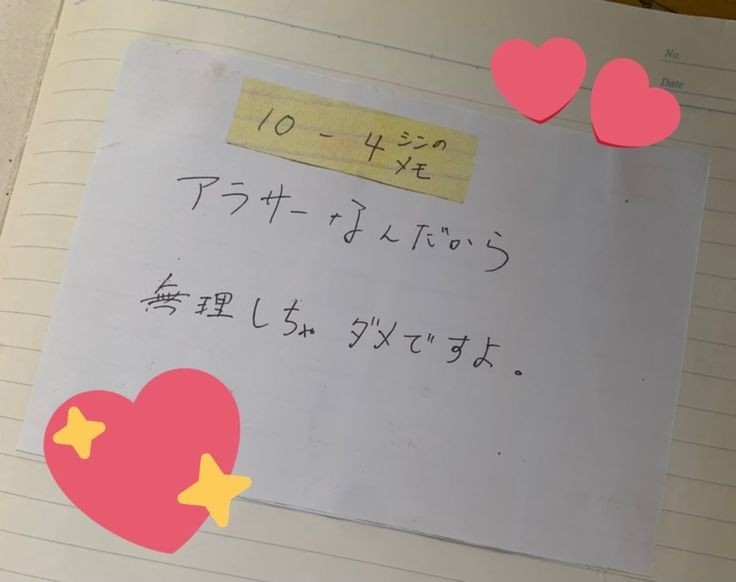 No.
Date
10 - 4 シンの
メモ
アラサーなんだから
無理しちゃダメですよ。